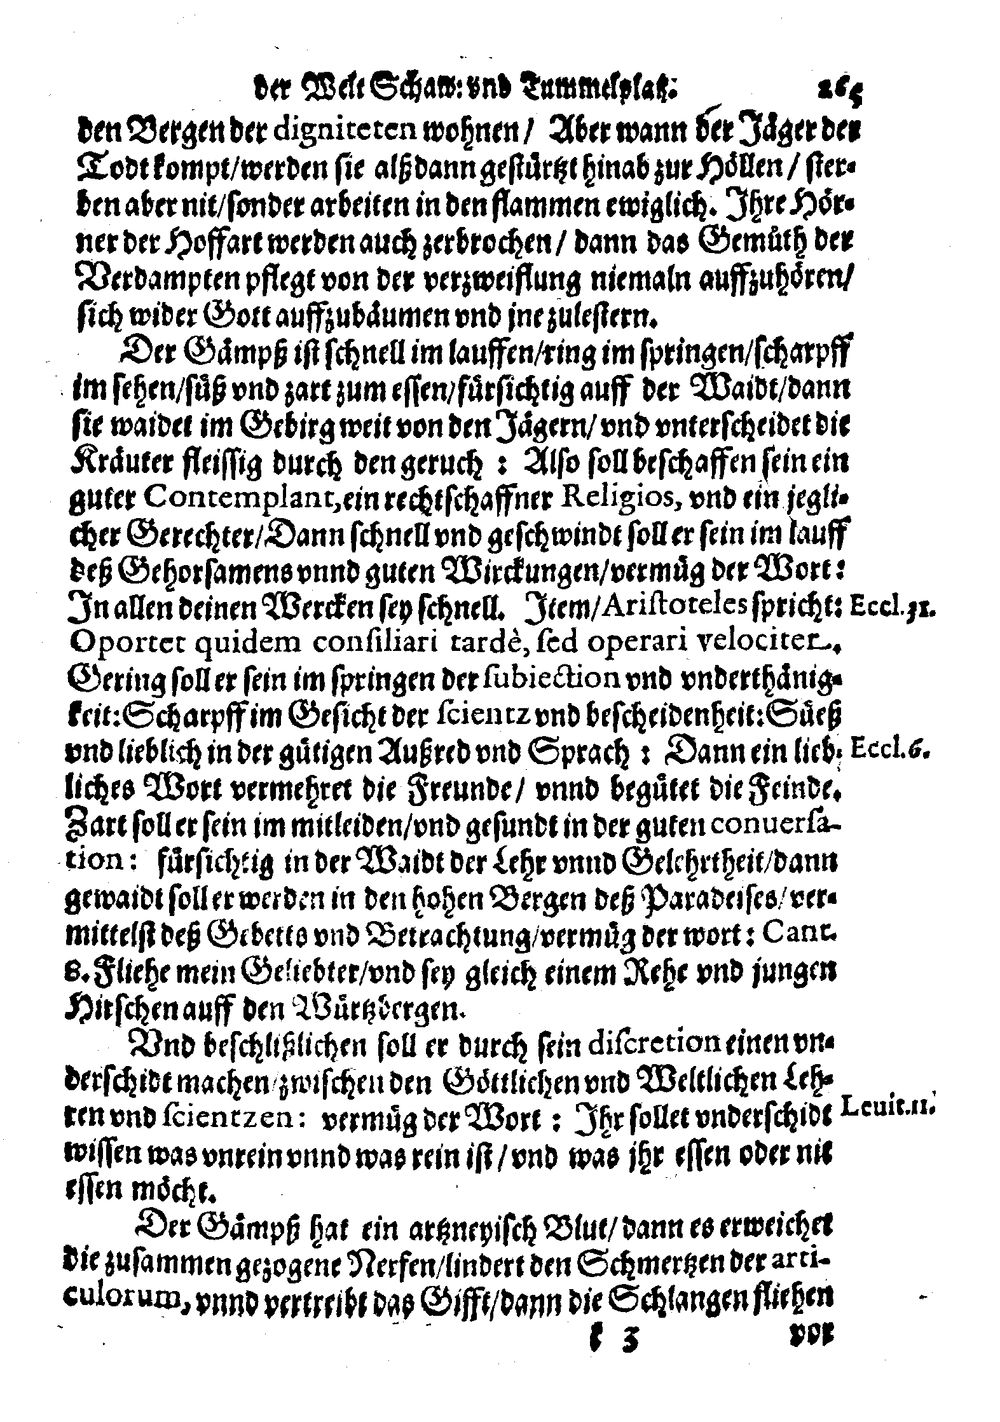 der Welt Schaw: vnd Tummelplatz. 265
den Bergen der digniteten wohnen/ Aber wann der Jäger der
Todt kompt/werden sie alßdann gestürtzt hinab zur Höllen/ ster-
ben aber nit/sonder arbeiten in den flammen ewiglich. Ihre Hör-
ner der Hoffart werden auch zerbrochen/ dann das Gemüth der
Verdampten pflegt von der verzweiflung niemaln auffzuhören/
sich wider Gott auffzubäumen vnd jne zulestern.
Der Gämpß ist schnell im lauffen/ring im springen/scharpff
im sehen/süß vnd zart zum essen/fürsichtig auff der Waidt/dann
sie waidet im Gebirg weit von den Jägern/vnd vnterscheidet die
Kräuter fleissig durch den geruch : Also soll beschaffen sein ein
guter Contemplant, ein rechtschaffner Religios, vnd ein jegli-
cher Gerechter/Dann schnell vnd geschwindt soll er sein im lauff
deß Gehorsamens vnnd guten Wirckungen/vermüg der Wort:
In allen deinen Wercken sey schnell. Item/Aristoteles spricht: Eccl.31.
Oportet quidem consiliari tardè, sed operari velociter.
Gering soll er sein im springen der subiection vnd vnderthänig-
keit: Scharpff im Gesicht der scientz vnd bescheidenheit: Süeß
vnd lieblich in der gütigen Außred vnd Sprach : Dann ein lieb- Eccl.6.
liches Wort vermehret die Freunde/ vnnd begütet die Feinde.
Zart soll er sein im mitleiden/vnd gesundt in der guten conuersa-
tion: fürsichtig in der Waidt der Lehr vnnd Gelehrtheit/dann
gewaidt soll er werden in den hohen Bergen deß Paradeises/ver-
mittelst deß Gebetts vnd Betrachtung/vermüg der wort: Cant.
8. Fliehe mein Geliebter/vnd sey gleich einem Rehe vnd jungen
Hirschen auff den Würtzbergen.
Vnd beschlißlichen soll er durch sein discretion einen vn-
derschidt machen/zwischen den Göttlichen vnd Weltlichen Leh-
ren vnd scientzen: vermüg der Wort : Ihr sollet vnderschidt Leuit.11.
wissen was vnrein vnnd was rein ist/vnd was jhr essen oder nit
essen möcht.
Der Gämpß hat ein artzneyisch Blut/dann es erweichet
die zusammen gezogene Nerfen/lindert den Schmertzen der arti-
culorum, vnnd vertreibt das Gifft/dann die Schlangen fliehen
k 3 vor